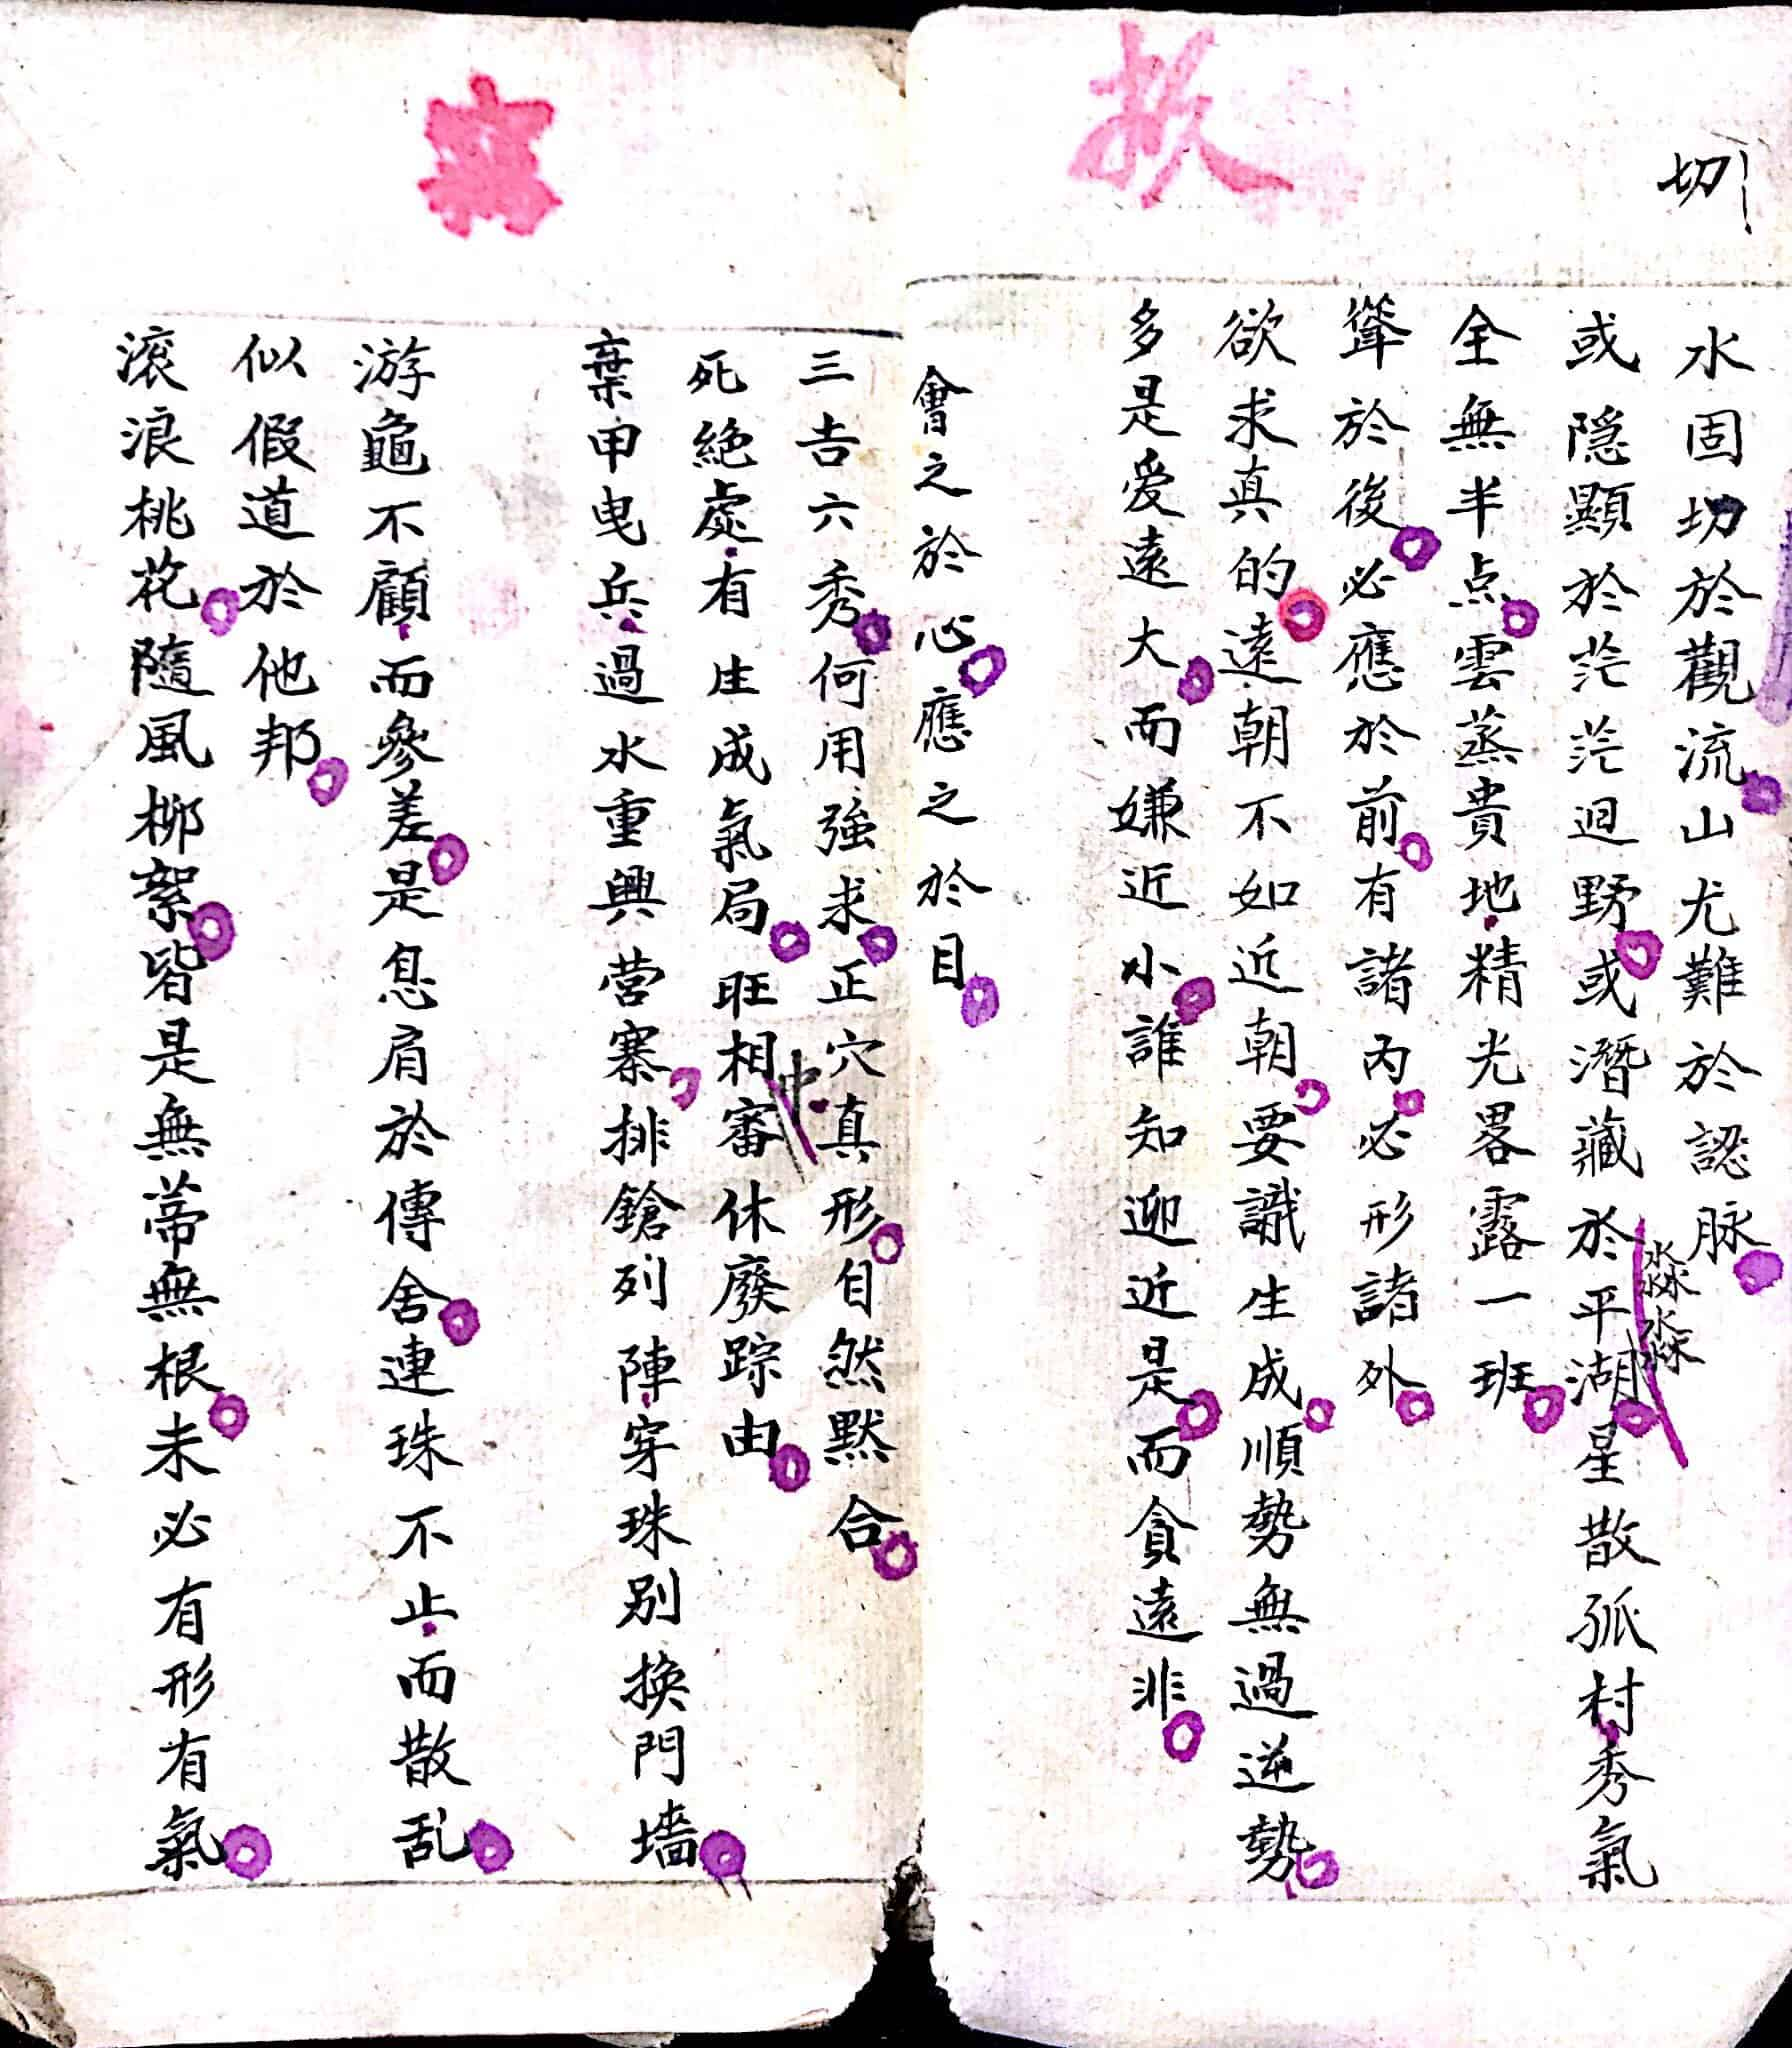 切
水固切於觀流山尤難於認脉
淼淼
或隐顯於茫茫迥野或潛藏於平湖星散孤村秀氣
全無半点雲蒸貴地精光畧露一班
聳於後必應於前有諸內必形諸外
欲求真的遠朝不如近朝要識生成順勢無過逆勢
多是爱遠大而嫌近小誰知迎近是而貪遠非
會之於心應之於目
三吉六秀何用強求正穴真形自然默合
中
死絕處有生成氣局旺相審休廢踪由
棄甲曳兵過水重興营寨排鎗列陣穿珠別換門墻
游龜不顧而參差是息肩於傳舍連珠不止而散乱
似假道於他邦
滚浪桃花隨風柳絮皆是無蒂無根未必有形有氣